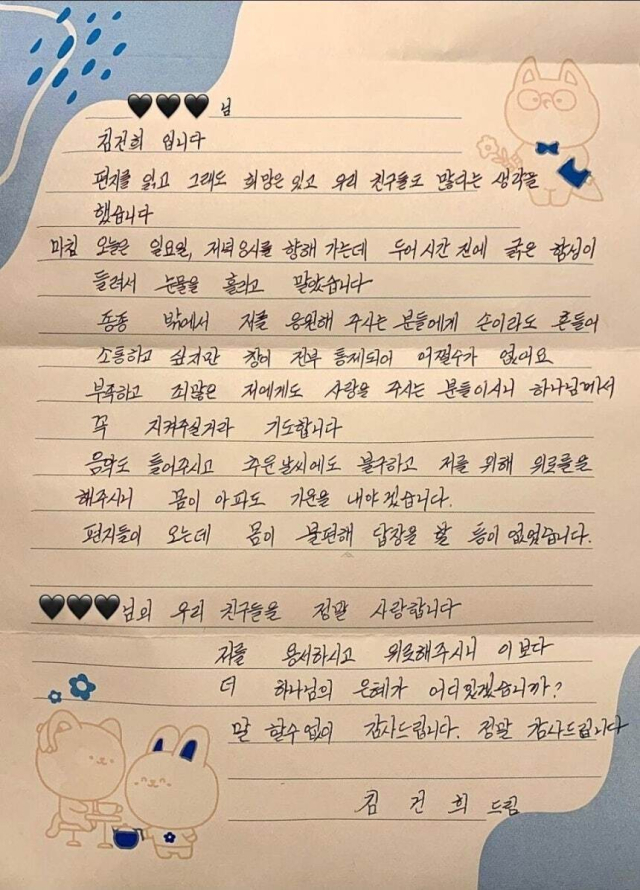 🖤🖤🖤 님
김건희 입니다
편지를 읽고 그래도 희망은 있고 우리 친구들도 많다는 생각을
했습니다
마침 오늘은 일요일, 저녁 8시를 향해 가는데 두어시간 전에 굵은 함성이
들려서 눈물을 흘리고 말았습니다
종종 밖에서 저를 응원해 주시는 분들에게 손이라도 흔들어
소통하고 싶지만 창이 전부 통제되어 어쩔수가 없어요
부족하고 죄많은 저에게도 사랑을 주시는 분들이시니 하나님께서
꼭 지켜주실거라 기도합니다
음악도 틀어주시고 추운날씨에도 불구하고 저를 위해 위로들을
해주시니 몸이 아파도 기운을 내야겠습니다.
편지들이 오는데 몸이 불편해 답장을 할 틈이 없었습니다.
🖤🖤🖤님의 우리 친구들을 정말 사랑합니다
저를 용서하시고 위로해주시니 이보다
더 하나님의 은혜가 어디있겠습니까?
말 할수없이 감사드립니다. 정말 감사드립니다
김 건 희 드림